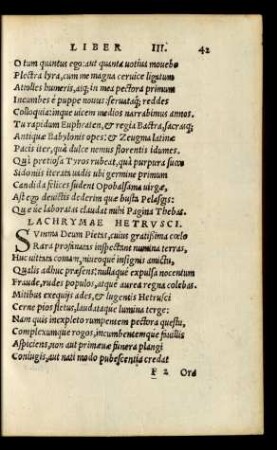 LIBER III. 42
O tum quantus ego: aut quanta uotius mouebo
Plectra lyra, cum me magna ceruice ligatum
Attolles humeris, atq; in mea pectora primum
Incumbes è puppe nouus: seruataq; reddes
Colloquia: inque uicem medios narrabimus annos.
Tu rapidum Euphraten, & regia Bactra, sacrasq;
Antiquæ Babylonis opes: & Zeugma latinæ
Pacis iter, quà dulce nemus florentis idumes.
Quà pretiosa Tyros rubeat, quà purpura suco
Sidoniis iterata uadis ubi germine primum
Candida felices sudent Opobalsama uirgæ,
Ast ego deuictis dederim quæ busta Pelasgis:
Quæ ue laboratas claudat mihi Pagina Thebas.
LACHRYMAE HETRVSCI.
SVmma Deum Pietas, cuius gratissima cœlo
Rara profanatas inspectant numina terras,
Huc uittata comam, niueoque insignis amictu,
Qualis adhuc præsens, nullaque expulsa nocentum
Fraude, rudes populos, atque aurea regna colebas.
Mitibus exequijs ades, & lugentis Hetrusci
Cerne pios fletus, laudataque lumina terge:
Nam quis inexpleto rumpentem pectora questu,
Complexumque rogos, incumbentemque fauillis
Aspiciens, non aut primæuæ funera plangi
Coniugis, aut nati modo pubescentia credat
F 2 Ora